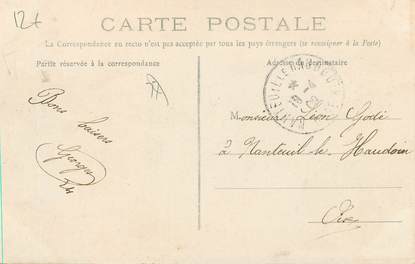 12t
CARTE POSTALE
La Correspondance au recto n'est pas acceptée par tous les pays étrangers (se renseigner à la Poste)
Partie réservée à la correspondance
Adresse du destinataire
Bons baisers
Georges
Monsieur Léon
à Nanteuil-le-Haudoin
Oise